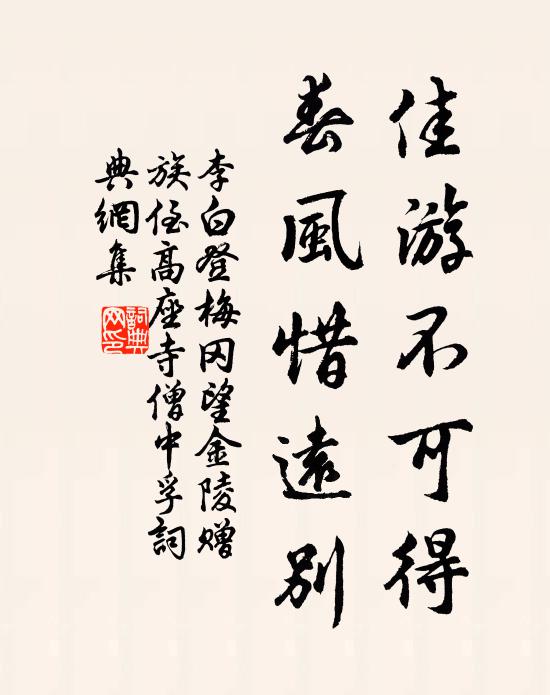 佳游不可得
春風惜遠別
李白登梅冈望金陵赠
族侄高座寺僧中孚詞
典網集
詞典
网印